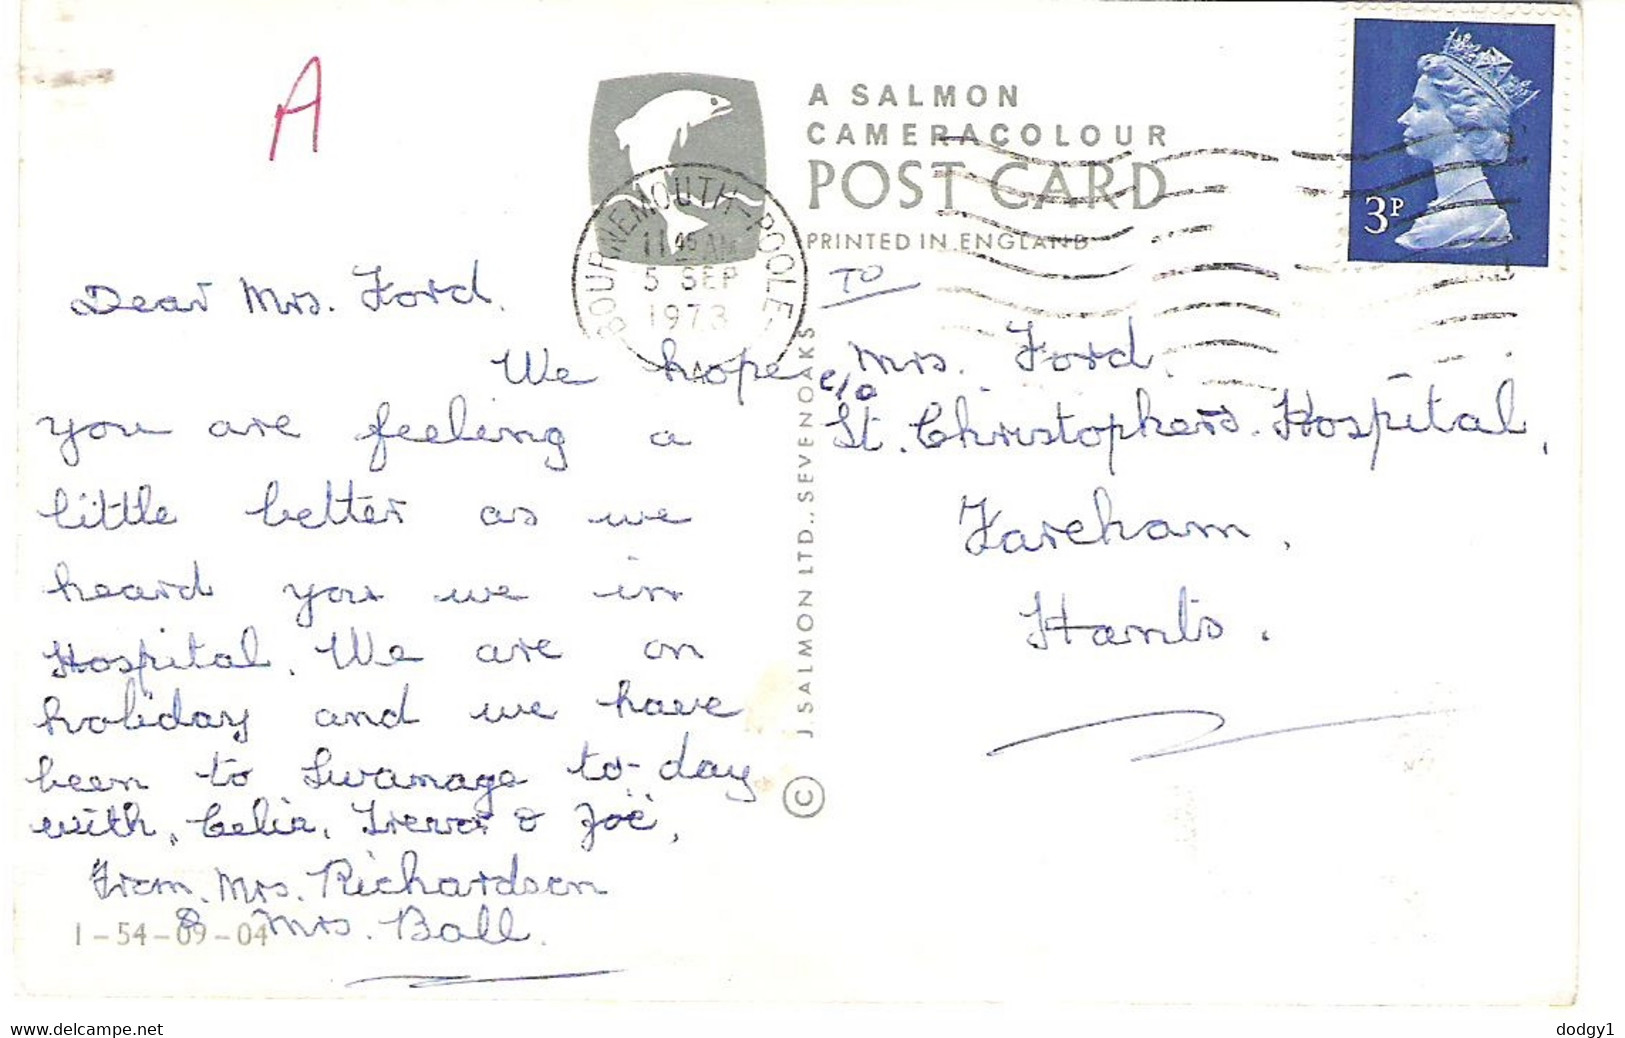 A
A SALMON
CAMERACOLOUR
POST CARD
PRINTED IN ENGLAND
3P
BOURNEMOUTH-POOLE
11 45 AM
5 SEP
1973
Dear Mrs. Ford.
We hope
you are feeling a
little better as we
heard you we in
Hospital. We are on
holiday and we have
been to Swanage to-day
with, Celia, Trevor & Zoë,
From. Mrs. Richardson
& Mrs. Ball.
1-54-09-04
J. SALMON LTD., SEVENOAKS ©
TO
Mrs. Ford.
c/o
St. Christophers. Hospital,
Fareham,
Hants.
www.delcampe.net
dodgy1